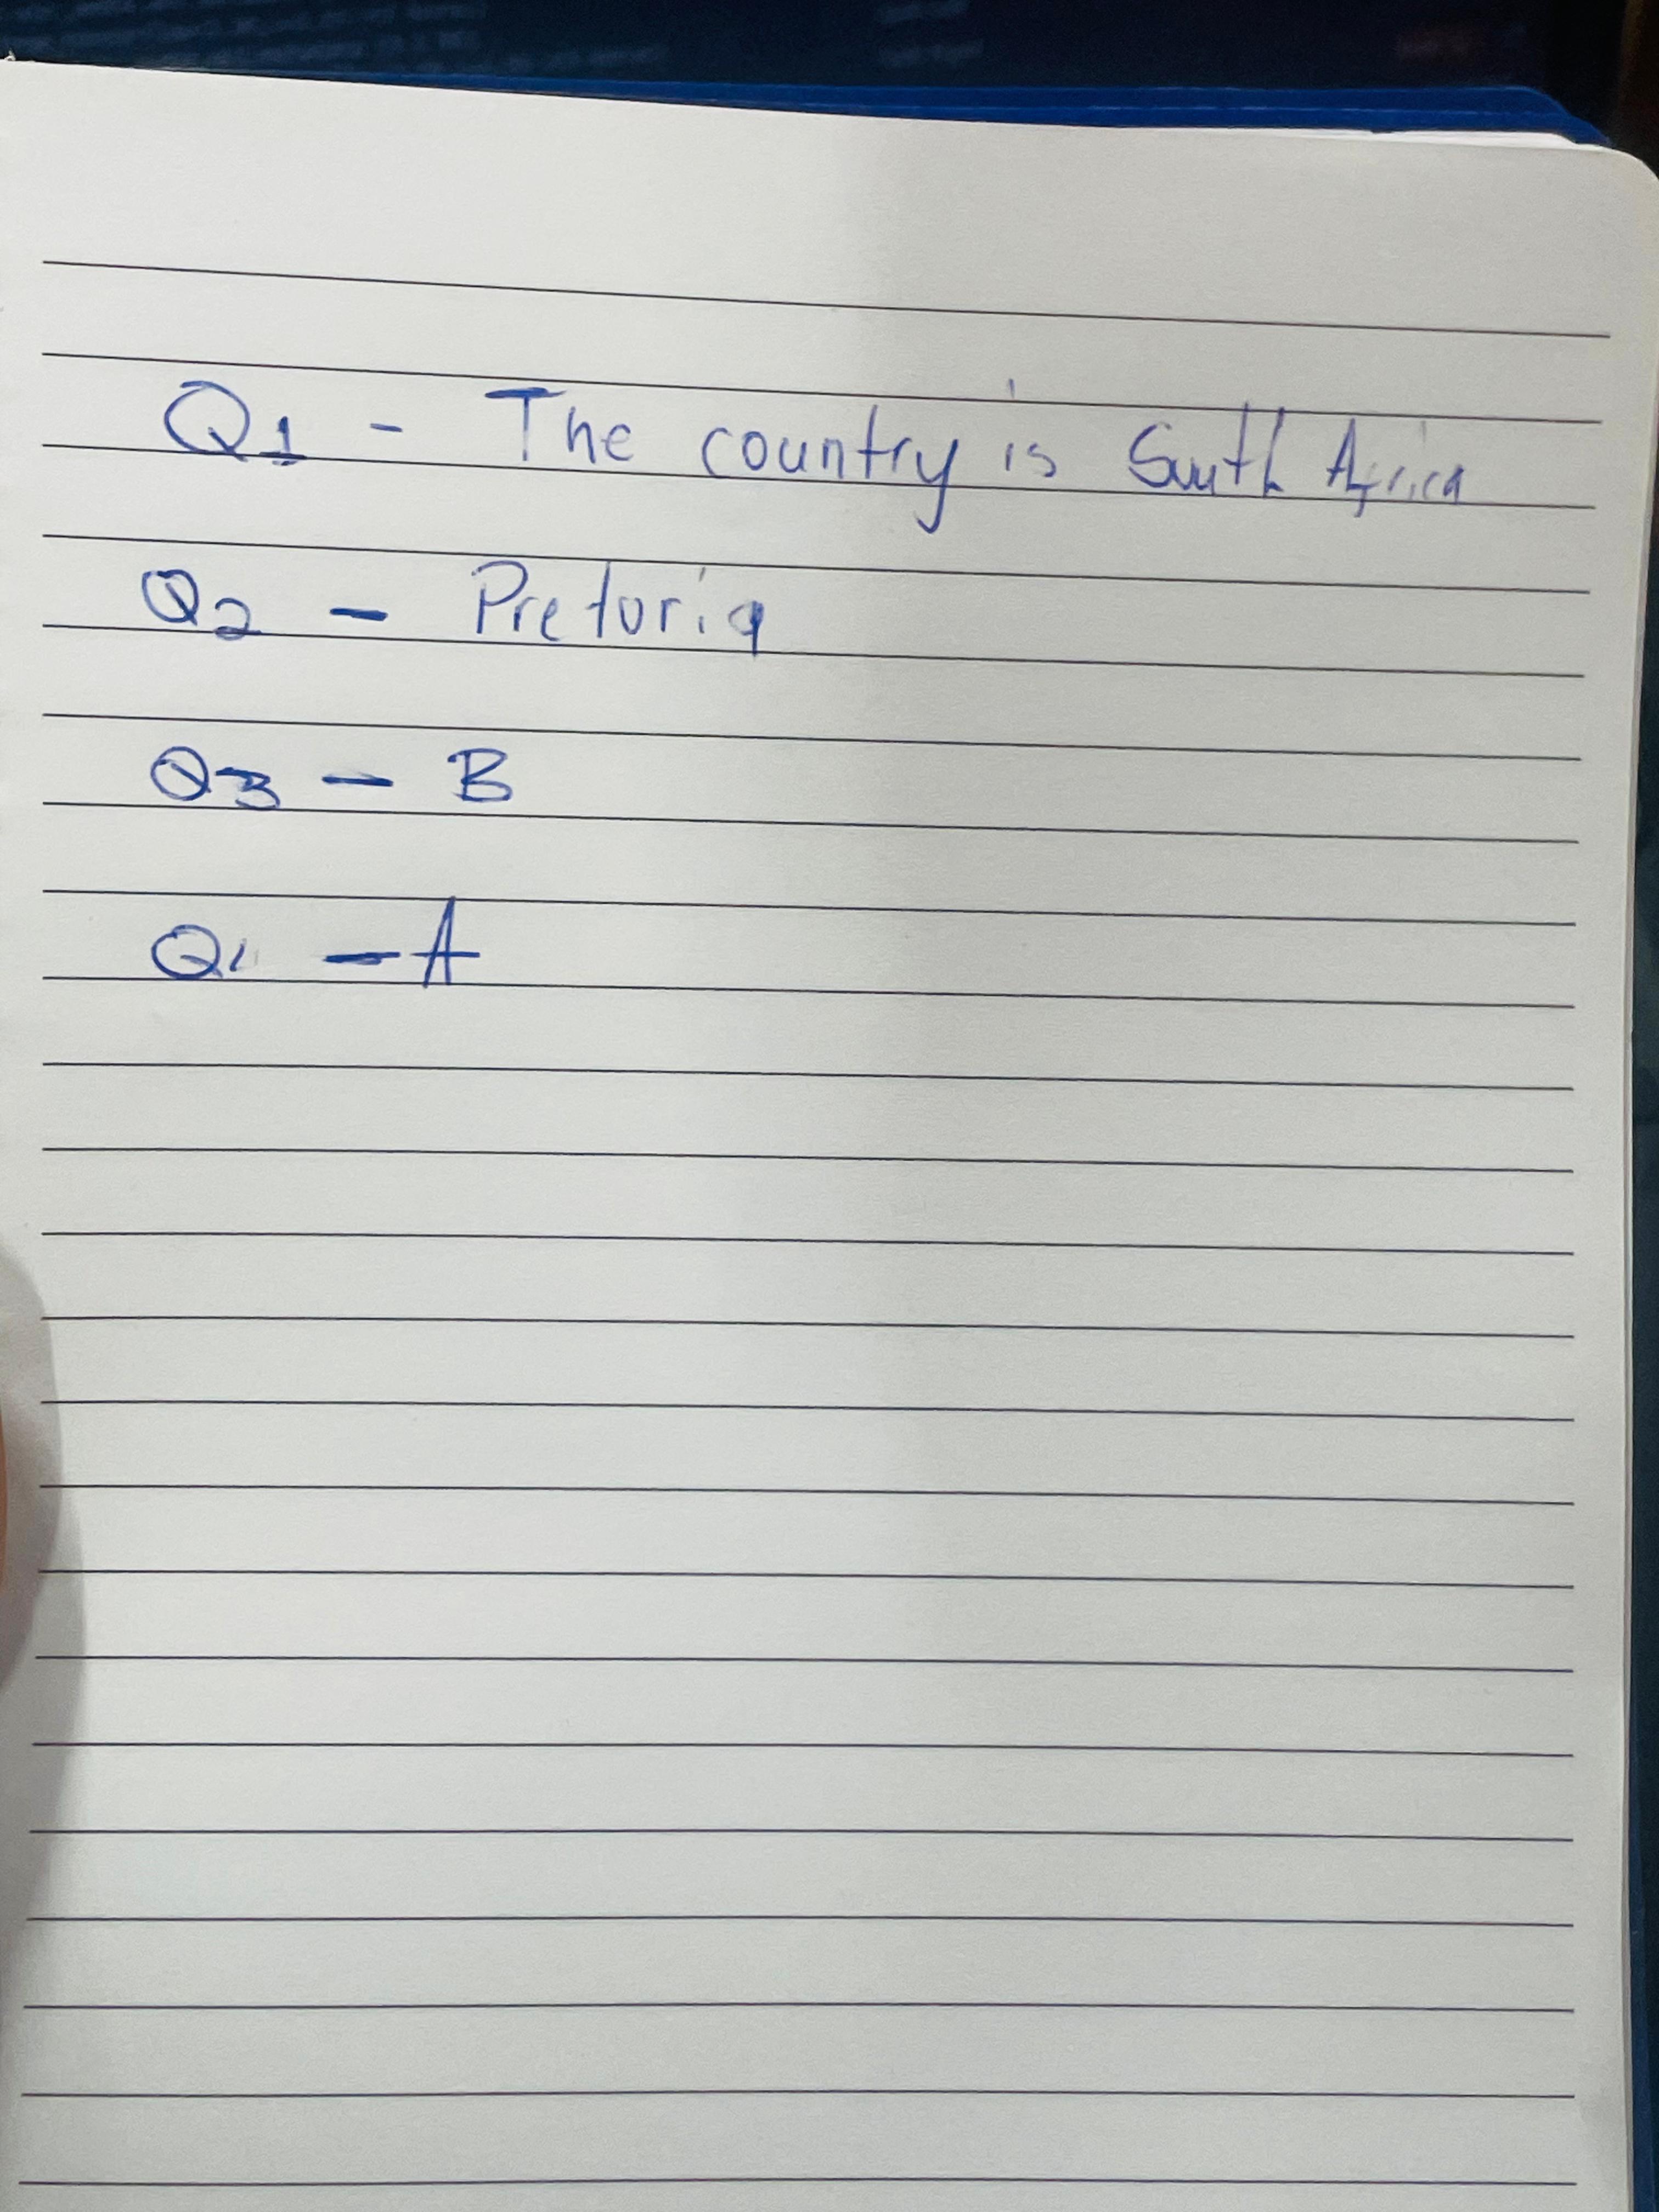 Q1 - The country is South Africa
Q2 - Pretoria
Q3 - B
- A